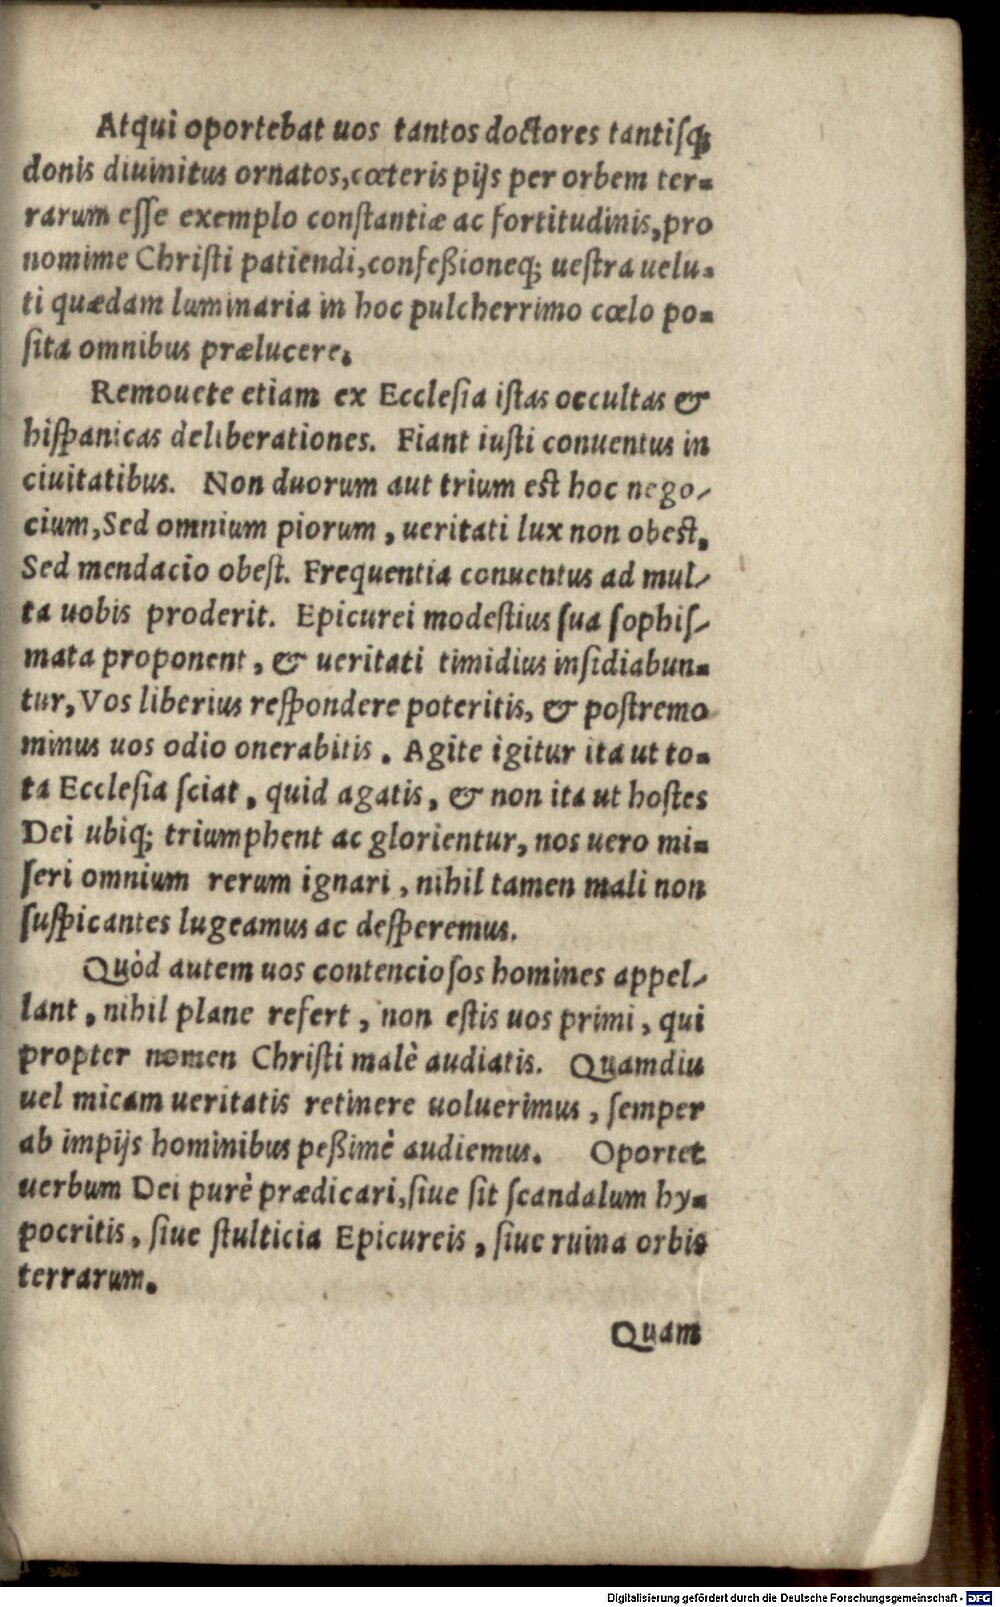 Atqui oportebat uos tantos doctores tantisq́;
donis diuinitus ornatos, cœteris pijs per orbem ter=
rarum eſſe exemplo conſtantiæ ac fortitudinis, pro
nomime Chriſti patiendi, confeßioneq; ueſtra uelu=
ti quædam luminaria in hoc pulcherrimo cœlo po=
ſita omnibus prælucere.
Remouete etiam ex Eccleſia iſtas occultas &
hiſpanicas deliberationes. Fiant iuſti conuentus in
ciuitatibus. Non duorum aut trium eſt hoc nego/
cium, Sed omnium piorum, ueritati lux non obeſt,
Sed mendacio obeſt. Frequentia conuentus ad mul/
ta uobis proderit. Epicurei modeſtius ſua ſophiſ/
mata proponent, & ueritati timidius inſidiabun=
tur, Vos liberius reſpondere poteritis, & poſtremo
minus uos odio onerabitis. Agite igitur ita ut to=
ta Eccleſia ſciat, quid agatis, & non ita ut hoſtes
Dei ubiq; triumphent ac glorientur, nos uero mi=
ſeri omnium rerum ignari, nihil tamen mali non
ſuſpicantes lugeamus ac deſperemus.
Quòd autem uos contencioſos homines appel/
lant, nihil plane refert, non eſtis uos primi, qui
propter nomen Chriſti malè audiatis. Quamdiu
uel micam ueritatis retinere uoluerimus, ſemper
ab impijs hominibus peßimè audiemus. Oportet
uerbum Dei purè prædicari, ſiue ſit ſcandalum hy=
pocritis, ſiue ſtulticia Epicureis, ſiue ruina orbis
terrarum.
Quam
Digitalisierung gefördert durch die Deutsche Forschungsgemeinschaft - DFG